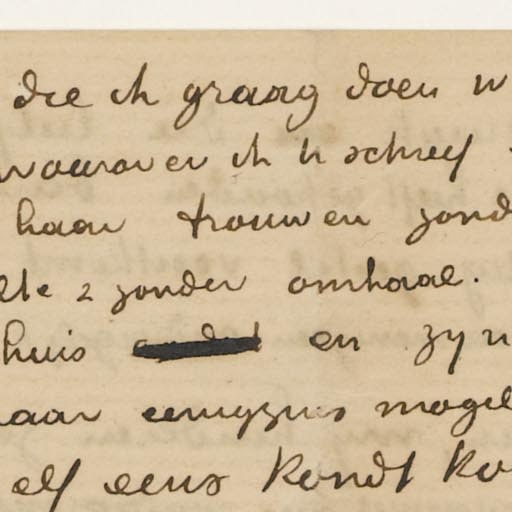 die ik graag doen w
waarover ik U schreef
haar trouwen zond
elke & zonder omhaal.
huis en zyn
haar eenigzins mogel
elf eens kondt ko